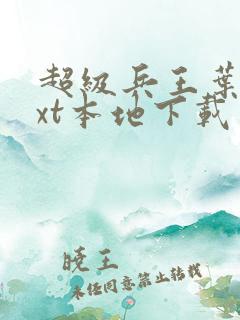 超级兵王葉
xt本地下载
晓王
未经同意禁止转载